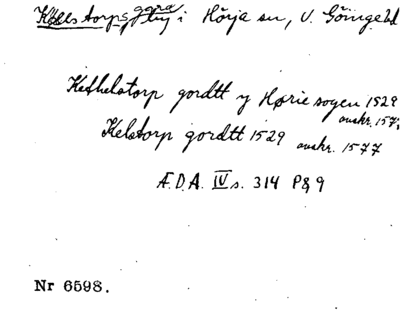 Kællstorpsgård i Hörja sn, V. Göinge hd
Kethelstorp gordtt y Hørie sogen 1529
avskr. 157
Kelstorp gordtt 1529 avskr. 1577
Æ.D.A. IV s. 314 P8,9
Nr 6598.